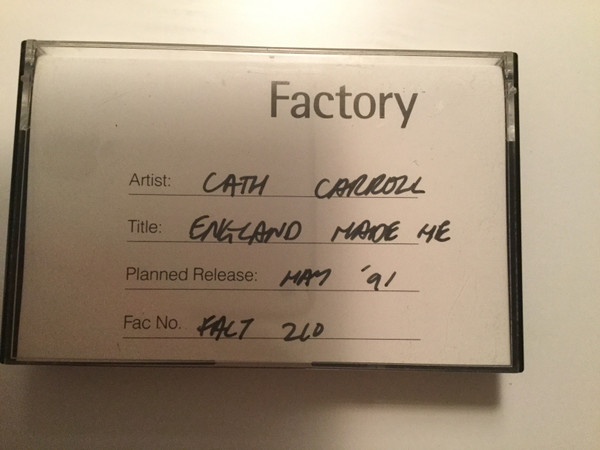 Factory
Artist: CATH CARROLL
Title: ENGLAND MADE ME
Planned Release: MAY '91
Fac No. FACT 210